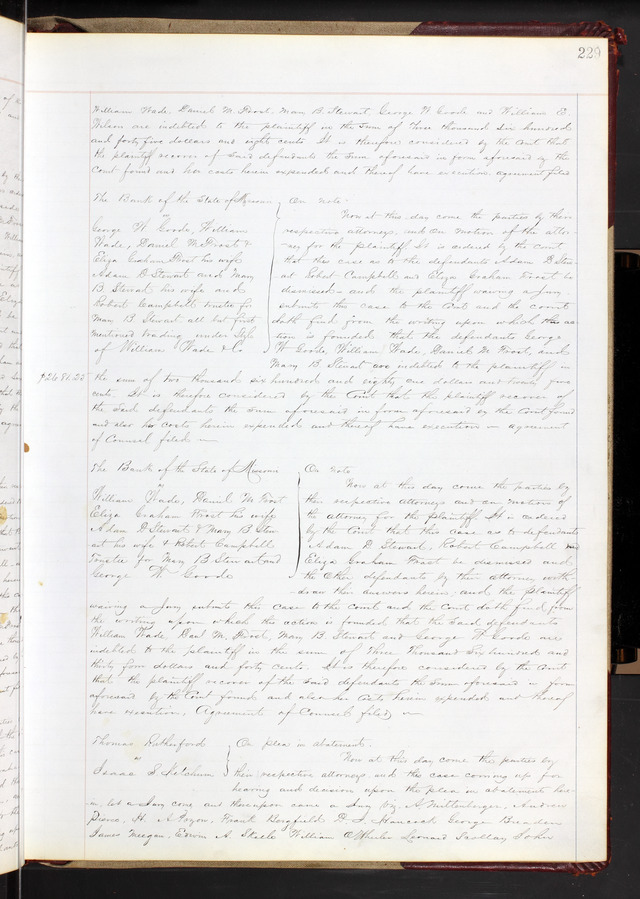 229
William Wade, Daniel M. Frost, Mary B. Stewart, George W Goode and William E.
Wilson are indebted to the plaintiff in the sum of three thousand six hundred
and forty five dollars and eight cents. It is therefore considered by the Court that
the plaintiff recover of said defendants the sum aforesaid in form aforesaid by the
Court found and her costs herein expended and thereof have execution, agreement filed
The Bank of the State of Missouri
vs
George W. Goode, William
Wade, Daniel M. Frost &
Eliza Graham Frost his wife
Adam D Stewart and Mary
B. Stewart his wife and
Robert Campbell trustee for
Mary B. Stewart all but first
mentioned trading under style
of William Wade & Co
On Note.
Now at this day come the parties by their
respective attorneys, and on motion of the attor-
-ney for the plaintiff It is ordered by the Court
that this case as to the defendants Adam D. Stew-
art Robert Campbell and Eliza Graham Frost be
dismissed and the plaintiff waiving a jury
submits this case to the Court and the court
doth find from the writing upon which this ac-
tion is founded that the defendants George
W Goode, William Wade, Daniel M. Frost, and
Mary B. Stewart are indebted to the plaintiff in
$2681.25 the sum of two thousand six hundred and eighty one dollars and twenty five
cents. It is therefore considered by the Court that the plaintiff recover of
the said defendants the sum aforesaid in form aforesaid by the Court found
and also his costs herein expended and thereof have execution agreement
of Counsel filed
The Bank of the State of Missouri
vs
William Wade, Daniel M Frost
Eliza Graham Frost his wife
Adam D Stewart & Mary B Stew-
art his wife & Robert Campbell
Trustee for Mary B. Stewart and
George W. Goode
On Note
Now at this day come the parties by
their respective attorneys and on motion of
the attorney for the plaintiff It is ordered
by the Court that this case as to defendants
Adam D Stewart, Robert Campbell and
Eliza Graham Frost be dismissed and
the other defendants by their attorney with-
-draw their answers herein; and the plaintiff
waiving a jury submits this case to the Court and the Court doth find from
the writing upon which this action is founded that the said defendants
William Wade, Danl M. Frost, Mary B. Stewart and George W Goode are
indebted to the plaintiff in the sum of Three Thousand Six hundred and
thirty four dollars and forty cents. It is therefore considered by the Court
that the plaintiff recover of the said defendants the sum aforesaid in form
aforesaid by the Court found and also her costs herein expended and thereof
have execution, Agreement of Counsel filed
Thomas Rutherford
vs
Isaac S. Ketchum
On plea in abatement.
Now at this day come the parties by
their respective attorneys and this case coming up for
hearing and decision upon the plea in abatement here-
in, let a Jury come and thereupon came a Jury viz. A Mittenberger, Andrew
Pierce, H. A. Frank Bergfield R. S. Hancock George
James Meegan, Edwin A. Skeele William Wheeler Leonard John